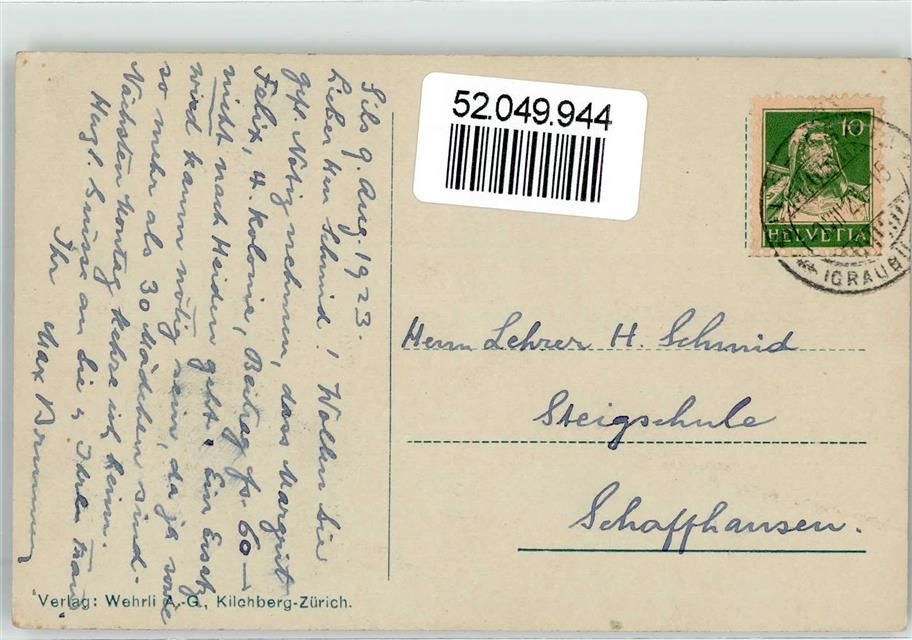 Sils 9. Aug. 1923.
Lieber Herr Schmid! Wollen Sie
gfl. Notiz nehmen, dass Margrit
Felix, 4. Kolonie, Beitrag fr. 60.—
nicht nach Heiden geht. Ein Ersatz
wird kaum nötig sein, da ja sowie
so mehr als 30 Mädchen sind.
Nächsten Montag kehre ich heim.
Herzl. Grüsse an Sie & Ihre Frau
Ihr Max
52.049.944
10
HELVETIA
(GRAUBÜ
Herrn Lehrer H. Schmid
Steigschule
Schaffhausen.
Verlag: Wehrli A.-G., Kilchberg-Zürich.